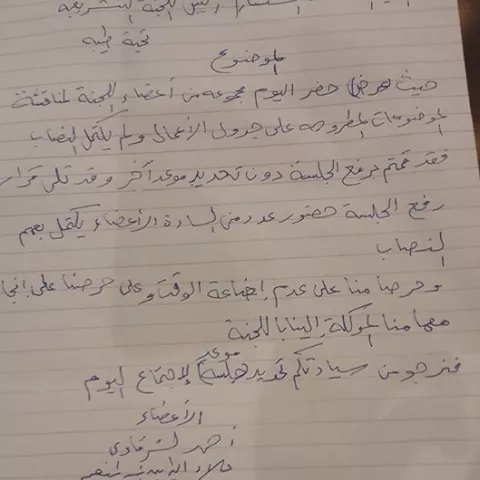 رئيس اللجنة التشريعية
تحية طيبة
الموضوع
حيث حضر اليوم مجموعه من أعضاء اللجنة لمناقشة
الموضوعات المطروحه على جدول الأعمال ولم يكتمل النصاب
فقد قمتم برفع الجلسة دون تحديد موعد آخر وقد تلى قرار
رفع الجلسة حضور عدد من السادة الأعضاء يكتمل بهم
النصاب
وحرصا منا على عدم إضاعة الوقت وعلى حرصنا على إنجا
مهامنا الموكلة إلينا باللجنة
فنرجو من سيادتكم تحديد موعد لإجتماع اليوم
الأعضاء
أحمد الشرقاوى